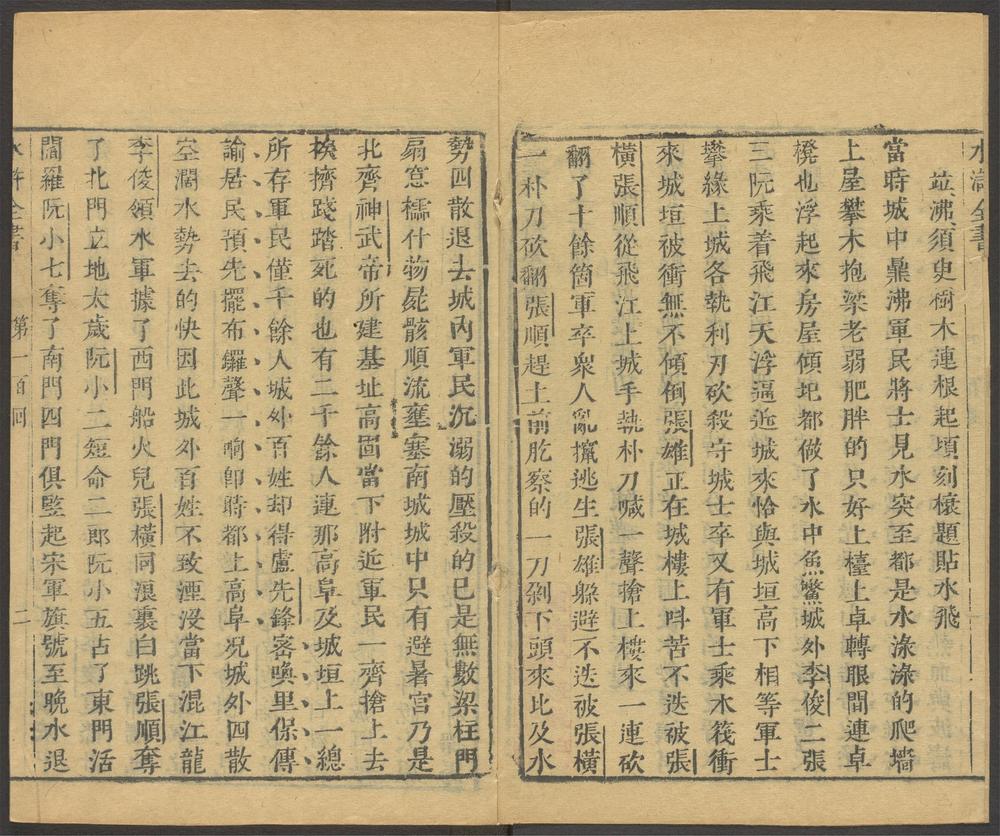 水滸全書
竝沸須臾樹木連根起頃刻榱題貼水飛
當時城中鼎沸軍民將士見水突至都是水淥淥的爬墻
上屋攀木抱梁老弱肥胖的只好上檯上卓轉眼間連卓
櫈也浮起來房屋傾圮都做了水中魚鱉城外李俊二張
三阮乘着飛江天浮逼近城來恰與城垣高下相等軍士
攀緣上城各執利刃砍殺守城士卒又有軍士乘木筏衝
來城垣被衝無不傾倒張雄正在城樓上呌苦不迭被張
橫張順從飛江上城手執朴刀喊一聲搶上樓來一連砍
翻了十餘箇軍卒衆人亂攛逃生張雄躲避不迭被張橫
一朴刀砍翻張順趕上前肐察的一刀剁下頭來比及水
勢四散退去城內軍民沉溺的壓殺的已是無數梁柱門
扇窓櫺什物屍骸順流壅塞南城城中只有避暑宮乃是
北齊神武帝所建基址高固當下附近軍民一齊搶上去
挨擠踐踏死的也有二千餘人連那高阜及城垣上一總
所存軍民僅千餘人城外百姓却得盧先鋒密喚里保傳
諭居民預先擺布鑼聲一响卽時都上高阜况城外四散
空濶水勢去的快因此城外百姓不致湮沒當下混江龍
李俊領水軍據了西門船火兒張橫同浪裏白跳張順奪
了北門立地太歲阮小二短命二郎阮小五占了東門活
閻羅阮小七奪了南門四門俱竪起宋軍旗號至晚水退
水滸全書 第一百回 二